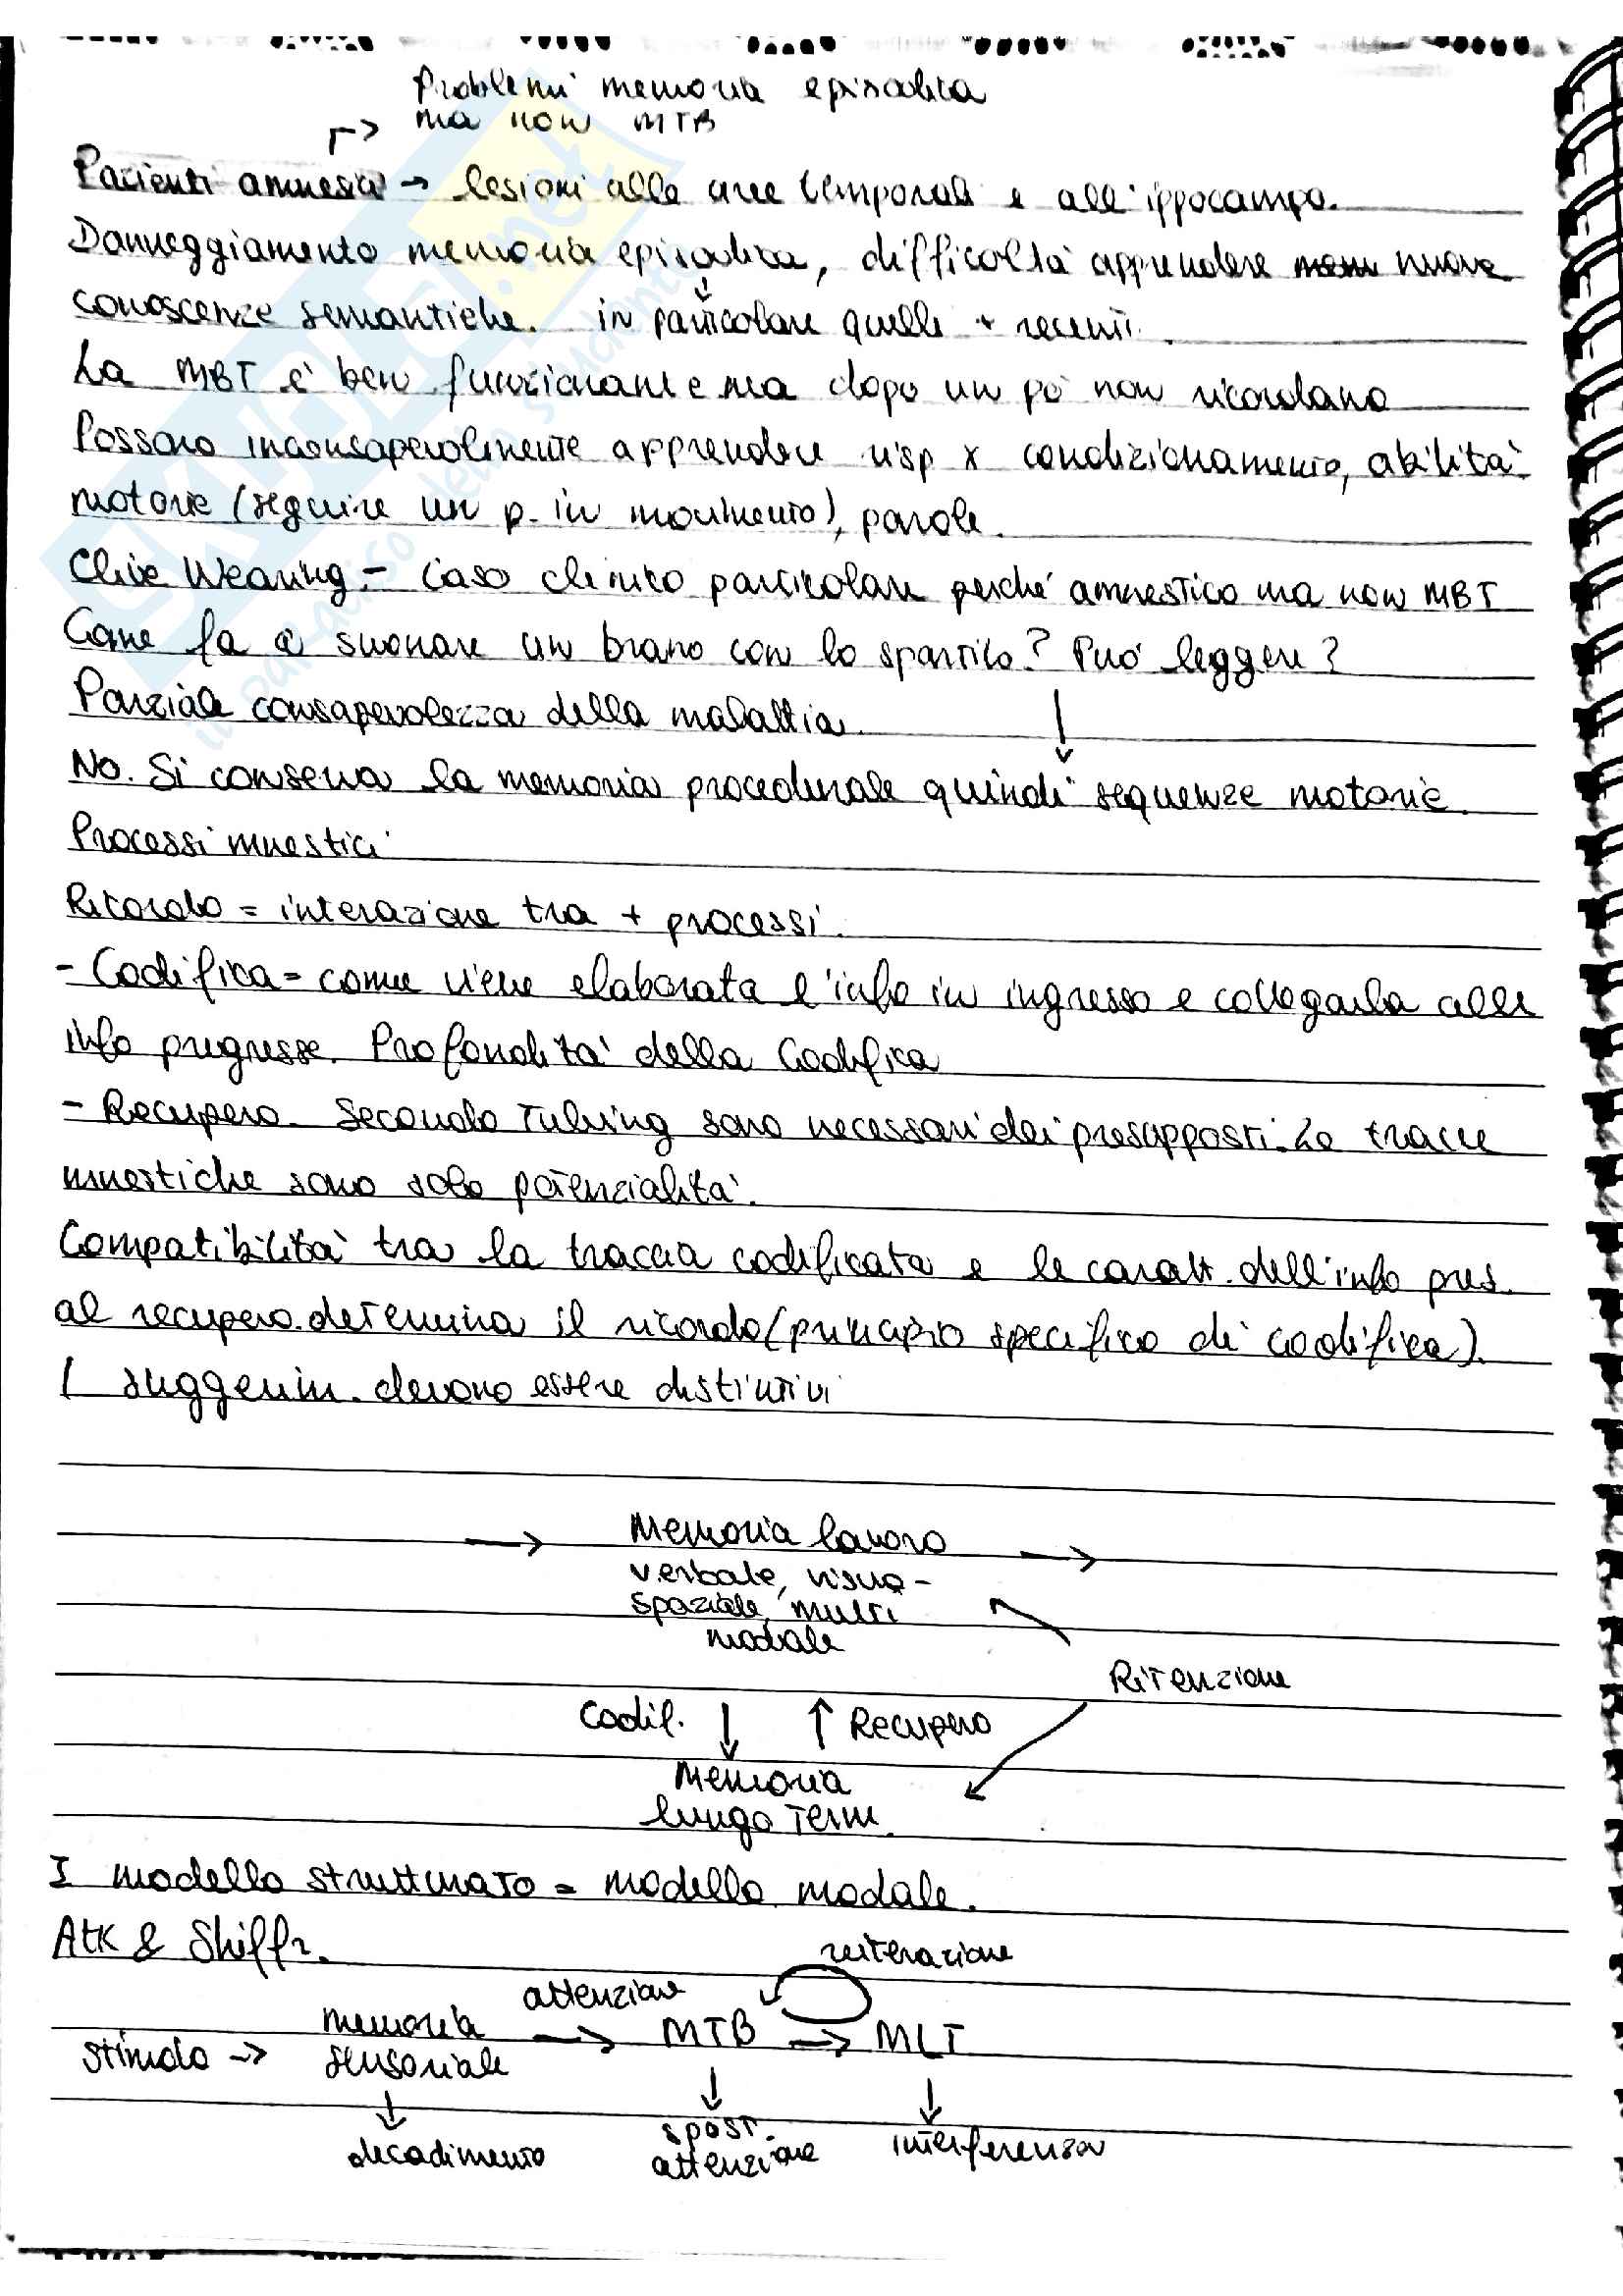 Problemi memoria episodica
ma non MTB
Pazienti amnesia → lesioni alle aree temporali e all'ippocampo.
Danneggiamento memoria episodica, difficoltà apprendere nuove
conoscenze semantiche. in particolare quelle + recenti.
La MBT è ben funzionante ma dopo un pò non ricordano
Possono inconsapevolmente apprendere risp x condizionamento, abilità
motorie (seguire un p. in movimento), parole.
Clive Wearing - Caso clinico particolare perché amnestico ma non MBT
Come fa a suonare un brano con lo spartito? Può leggere?
Parziale consapevolezza della malattia.
No. Si conserva la memoria procedurale quindi sequenze motorie.
Processi mnestici
Ricordo = interazione tra + processi.
- Codifica = come viene elaborata l'info in ingresso e collegarla alle
info pregresse. Profondità della Codifica
- Recupero. Secondo Tulving sono necessari dei presupposti. Le tracce
mnestiche sono solo potenzialità.
Compatibilità tra la traccia codificata e le caratt. dell'info pres.
al recupero determina il ricordo (principio specifico di codifica).
I suggerim. devono essere distintivi
→ Memoria lavoro →
verbale, visuo-
spaziale, multi
modale
Ritenzione
Codif. ↓ ↑ Recupero
Memoria
lungo Term.
I modello strutturato = modello modale.
Atk & Shiffr.
reiterazione
attenzione
stimolo → memoria sensoriale → MTB → MLT
↓ ↓ ↓
decadimento spost. attenzione interferenza
SKUOLA.net
il paradiso dello studente